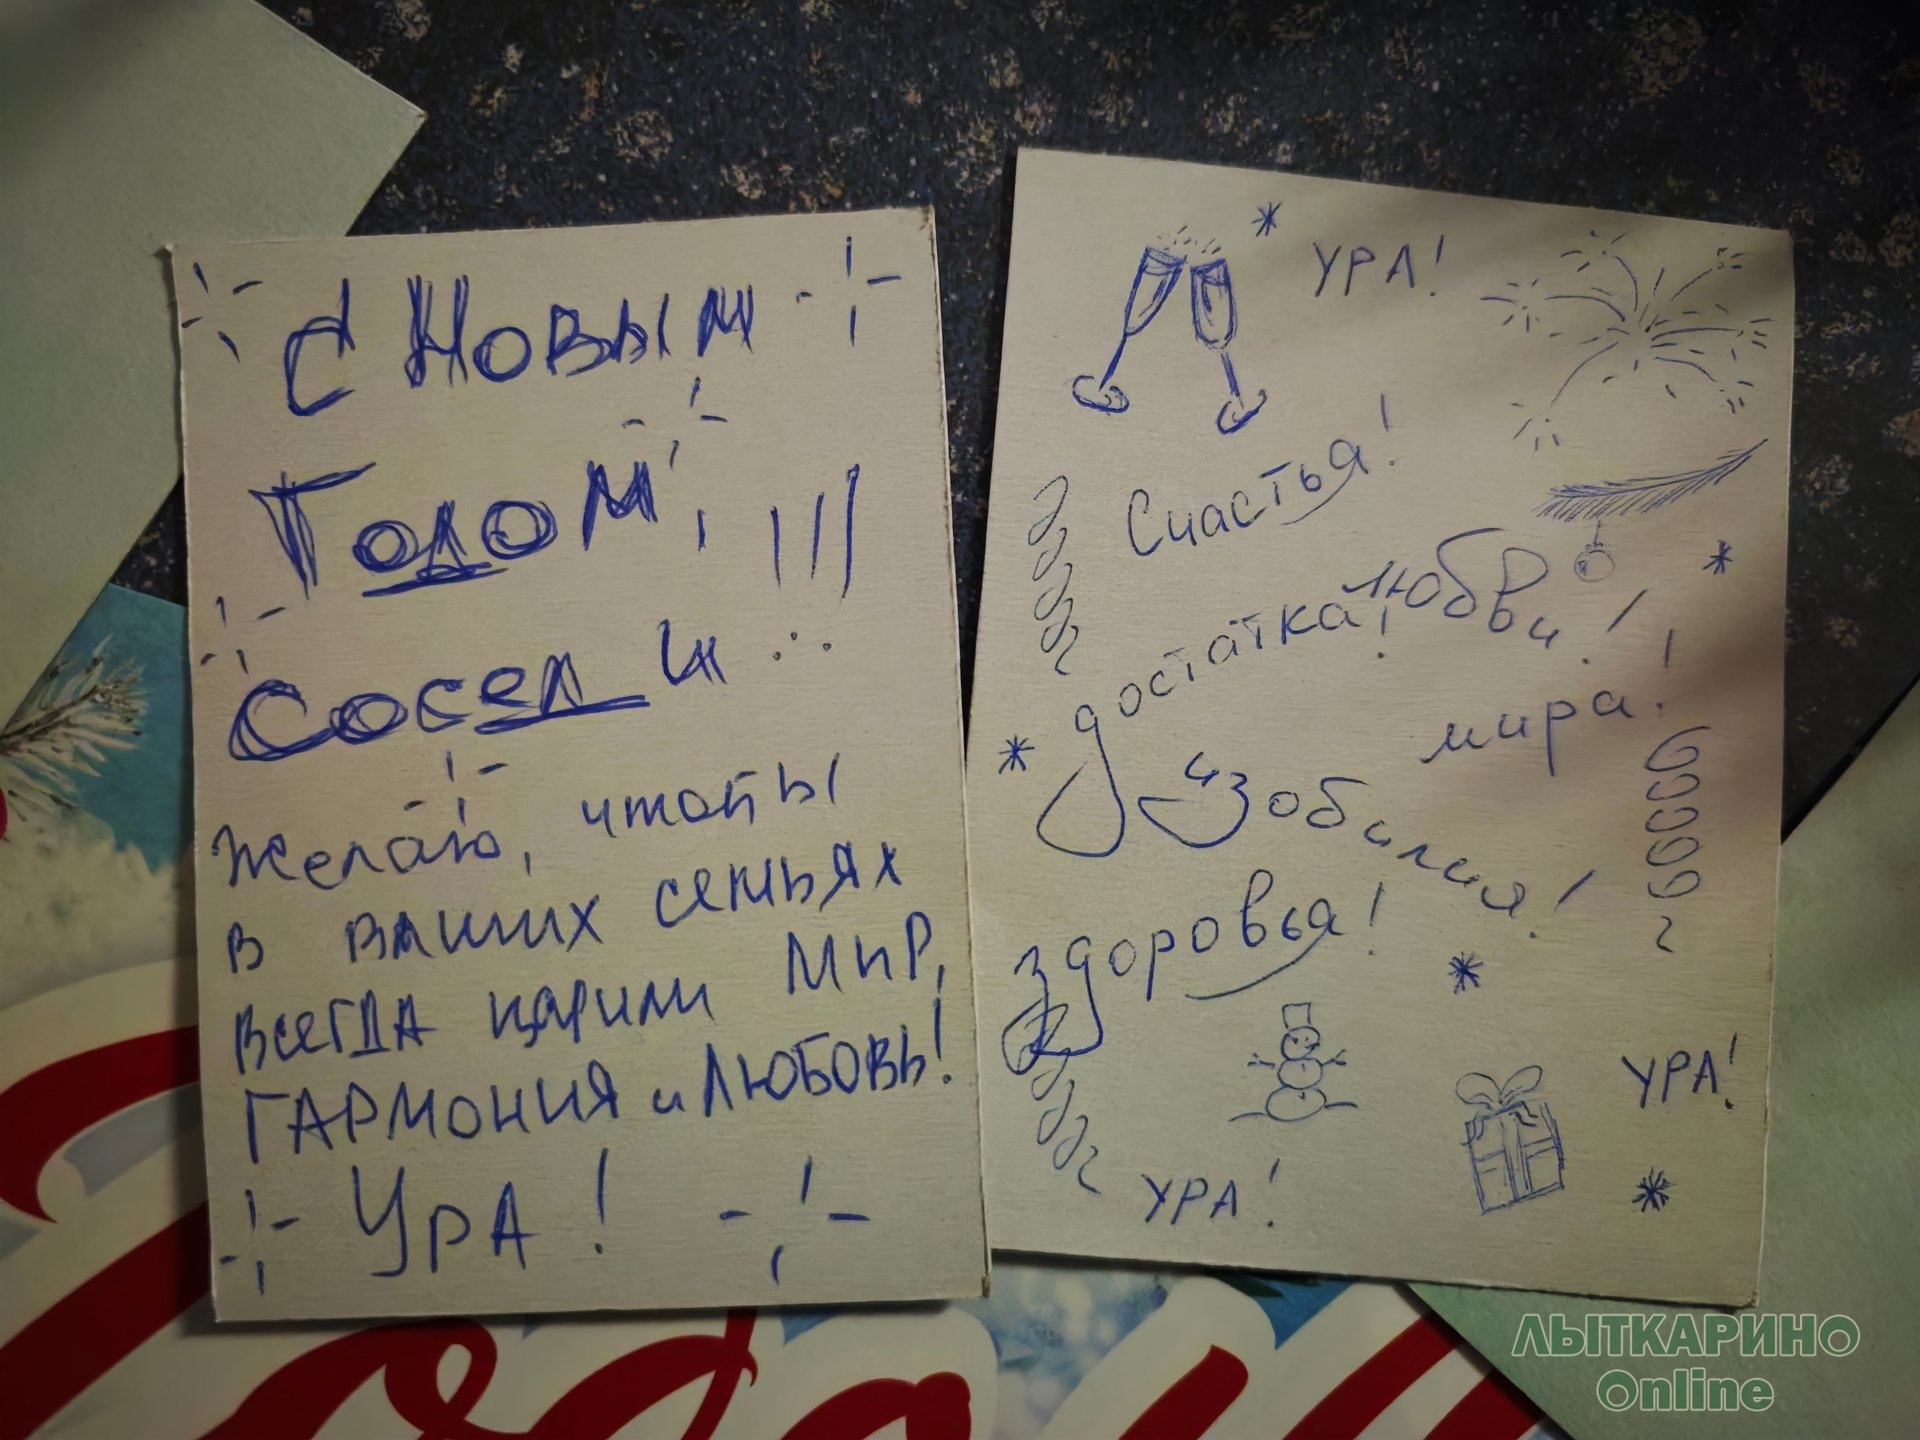 С Новым
Годом,
Соседи !!!
Желаю, чтобы
в ваших семьях
всегда царили мир,
гармония и любовь!
Ура!
УРА!
Счастья!
достатка! любви!
мира!
изобилия!
здоровья!
УРА!
УРА!
ЛЫТКАРИНО
Online